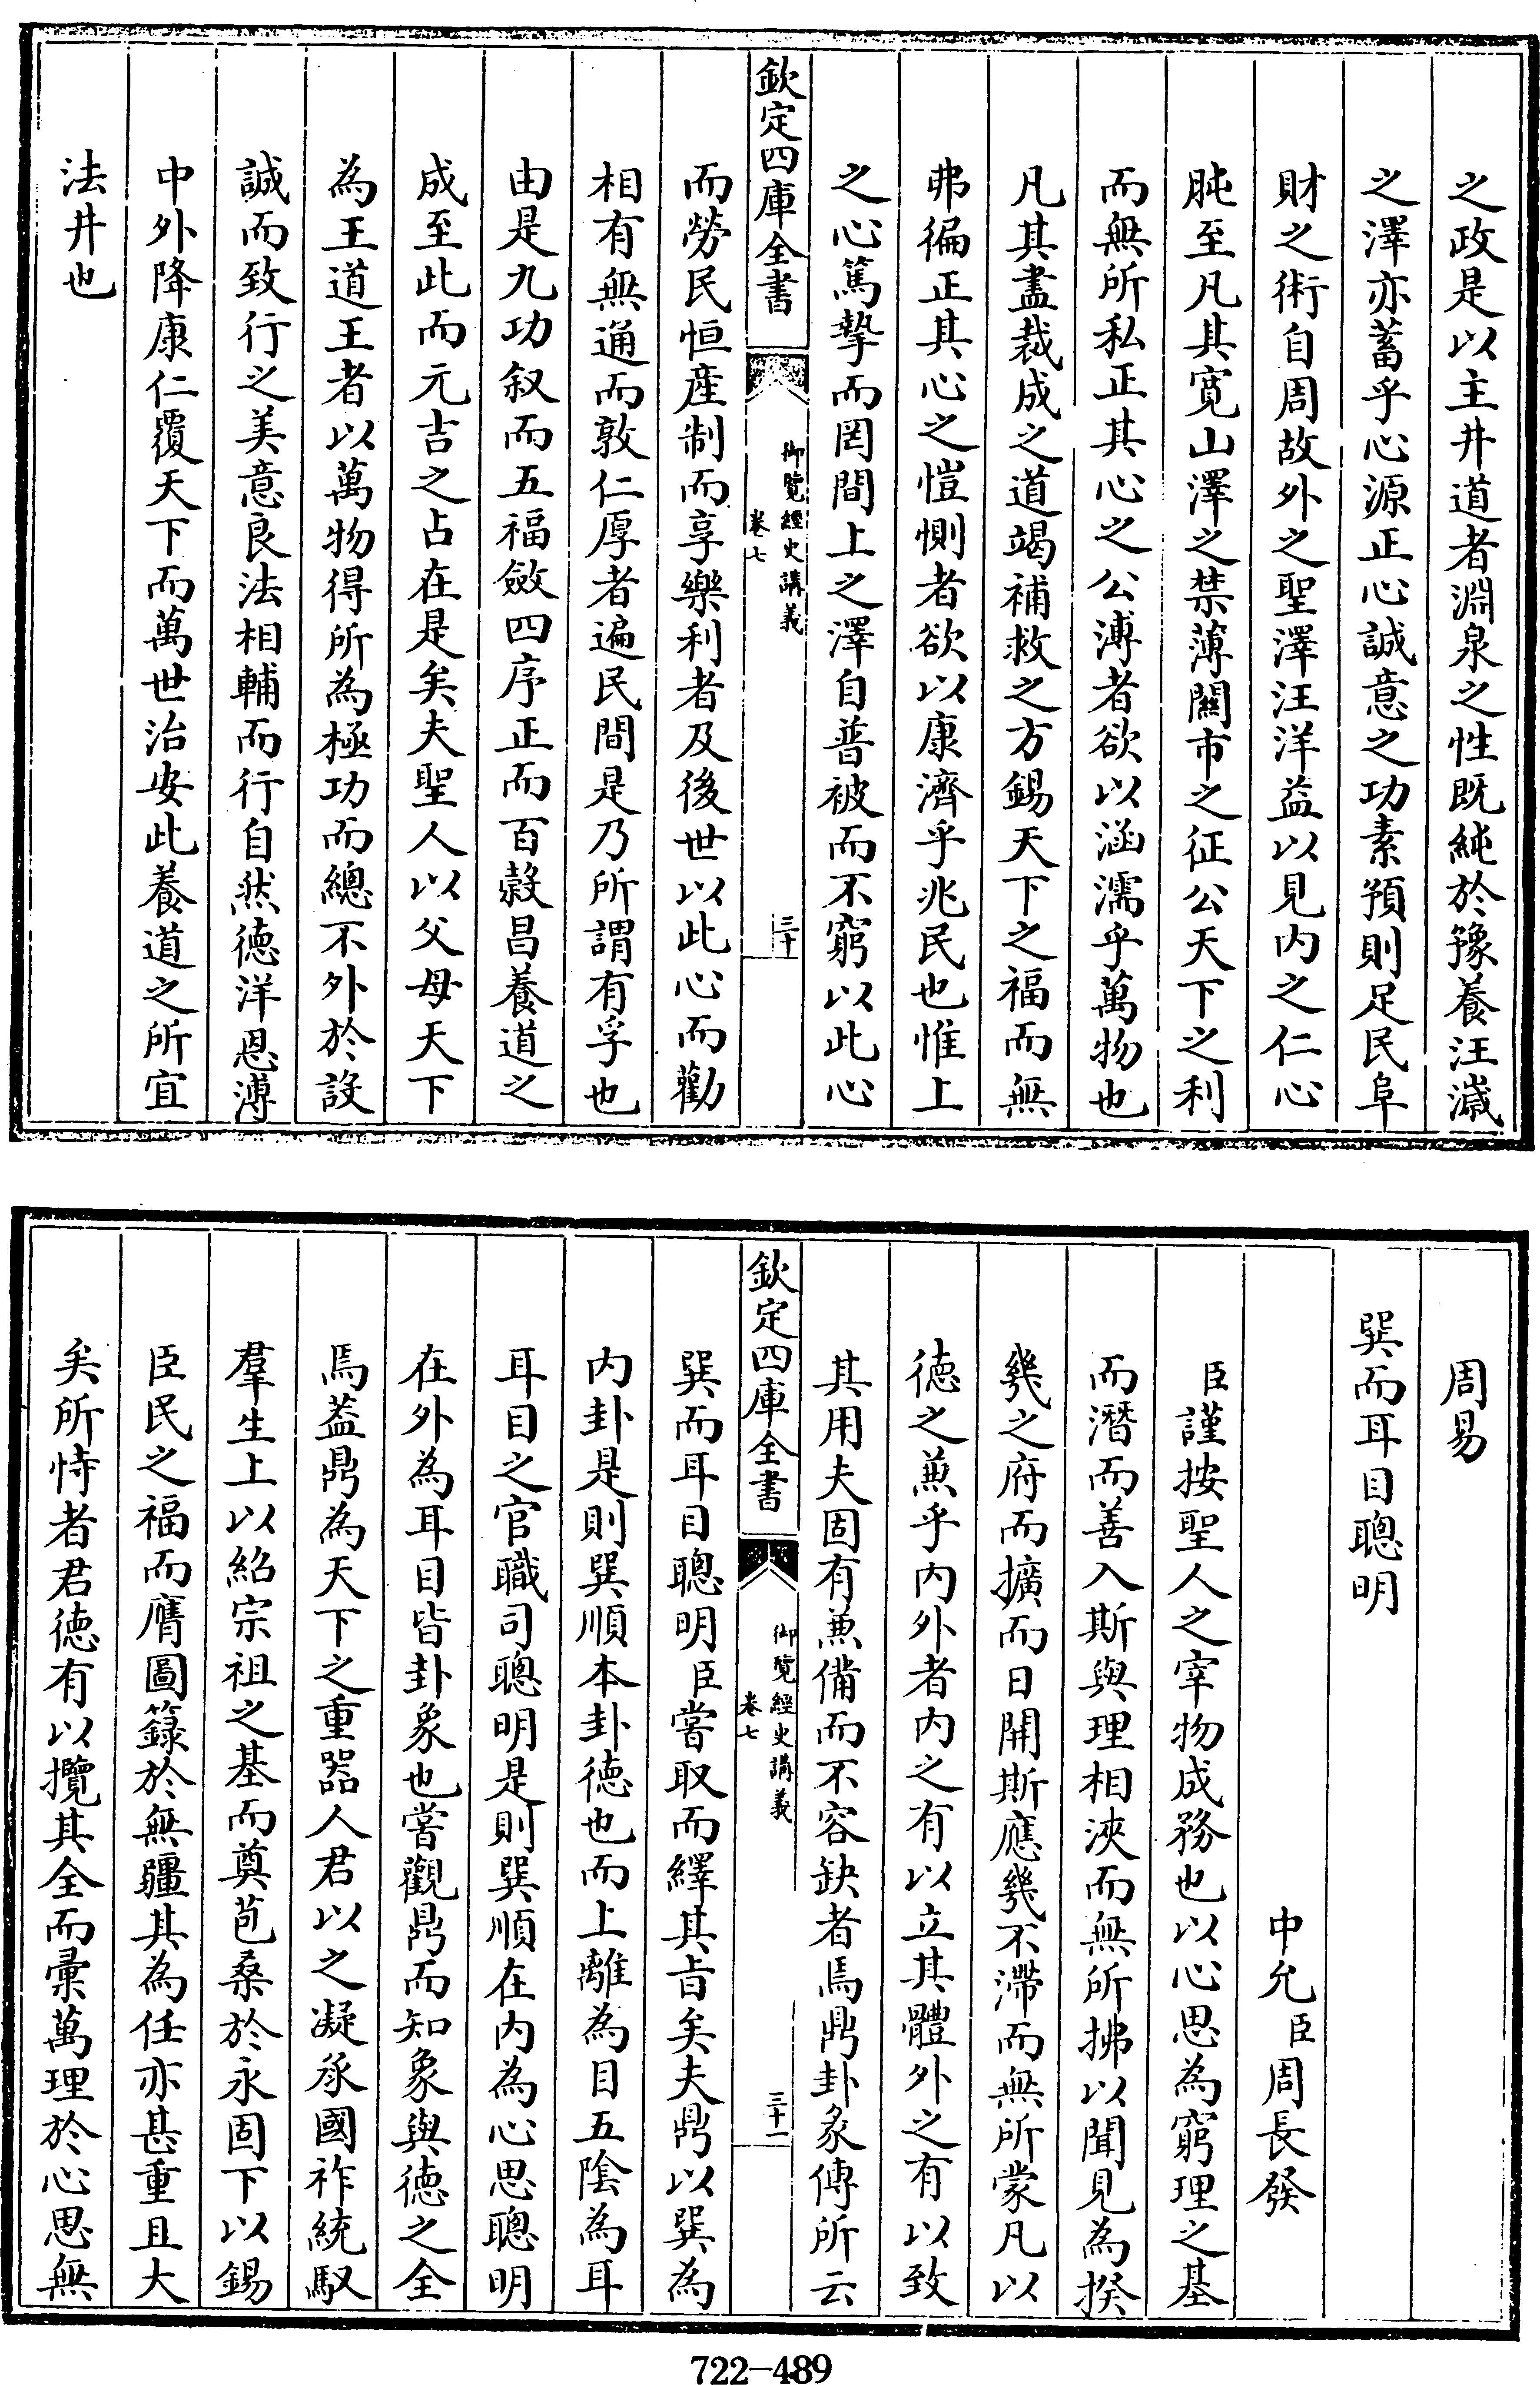 之政是以主井道者淵泉之性既純於豫養汪濊
之澤亦蓄乎心源正心誠意之功素預則足民阜
財之術自周故外之聖澤汪洋益以見內之仁心
肫至凡其寛山澤之禁薄關市之征公天下之利
而無所私正其心之公溥者欲以涵濡乎萬物也
凡其盡裁成之道竭補救之方錫天下之福而無
弗徧正其心之愷惻者欲以康濟乎兆民也惟上
之心篤摯而罔間上之澤自普被而不窮以此心
欽定四庫全書
御覽經史講義
卷七
三十
而勞民恒産制而享樂利者及後世以此心而勸
相有無通而敦仁厚者遍民間是乃所謂有孚也
由是九功叙而五福斂四序正而百穀昌養道之
成至此而元吉之占在是矣夫聖人以父母天下
為王道王者以萬物得所為極功而總不外於設
誠而致行之美意良法相輔而行自然徳洋恩溥
中外降康仁覆天下而萬世治安此養道之所宜
法井也
周易
巽而耳目聰明
中允臣周長發
臣謹按聖人之宰物成務也以心思為窮理之基
而潛而善入斯與理相浹而無所拂以聞見為揆
幾之府而擴而日開斯應幾不滯而無所蒙凡以
徳之兼乎內外者內之有以立其體外之有以致
其用夫固有兼備而不容缺者焉鼎卦彖傳所云
欽定四庫全書
御覽經史講義
卷七
三十一
巽而耳目聰明臣嘗取而繹其旨矣夫鼎以巽為
內卦是則巽順本卦徳也而上離為目五陰為耳
耳目之官職司聰明是則巽順在內為心思聰明
在外為耳目皆卦象也嘗觀鼎而知象與徳之全
焉蓋鼎為天下之重器人君以之凝承國祚統馭
羣生上以紹宗祖之基而奠苞桑於永固下以錫
臣民之福而膺圖籙於無疆其為任亦甚重且大
矣所恃者君徳有以攬其全而彙萬理於心思無
722-489